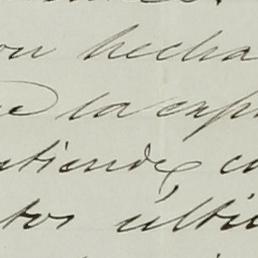 on hecha
e la cap
tiende, c
tos últi